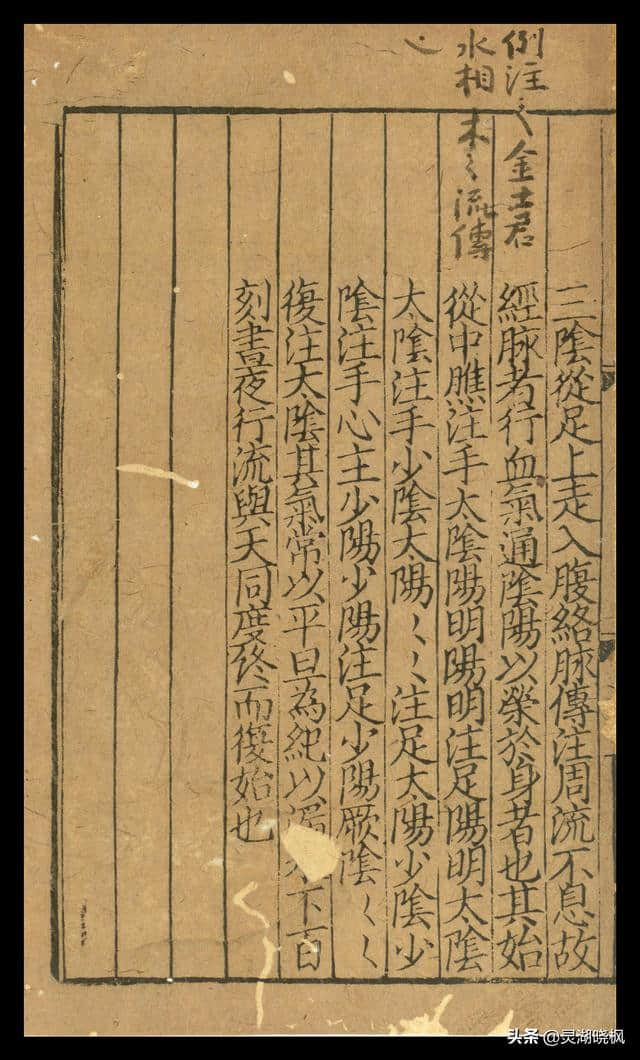 例注〻金土君
水相木〻流傳
三陰從足上走入腹絡脉傳注周流不息故
經脉者行血氣通陰陽以榮於身者也其始
從中膲注手太陰陽明陽明注足陽明太陰
太陰注手少陰太陽〻〻注足太陽少陰少
陰注手心主少陽少陽注足少陽厥陰〻〻
復注太陰其氣常以平旦為紀以漏水下百
刻晝夜行流與天同度終而復始也
头条 @灵湖晓枫